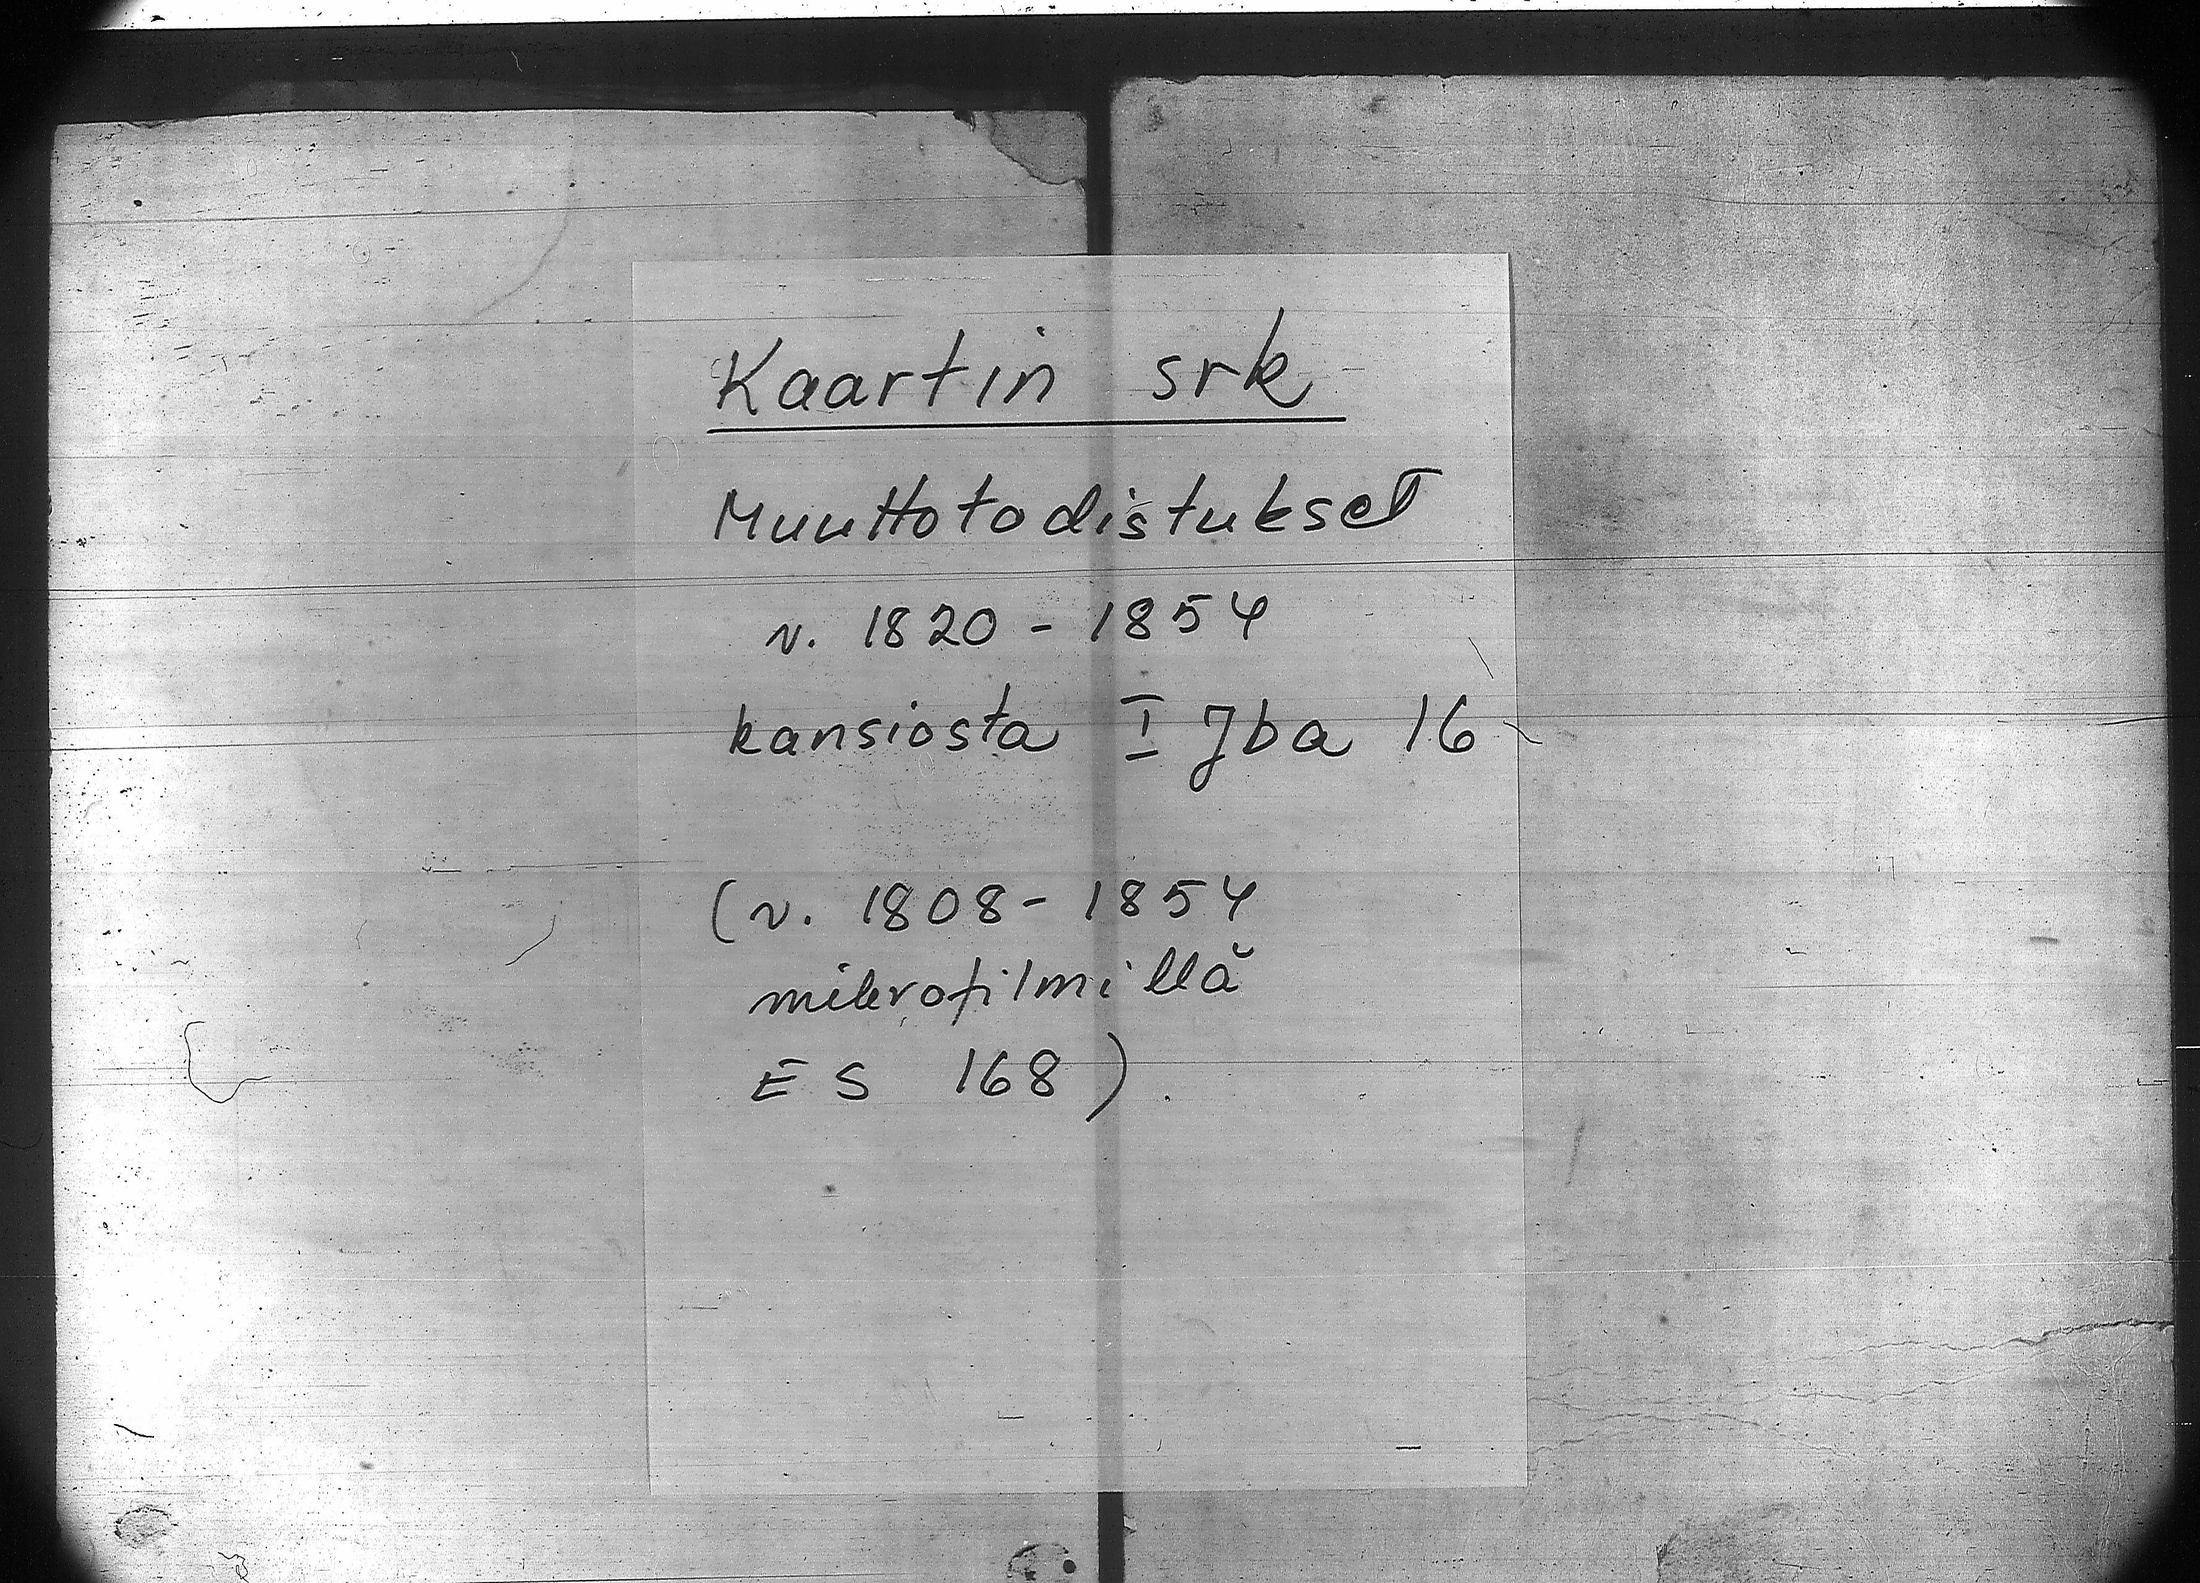 Kaartin srk
Muuttotodistukset
v. 1820 - 1854
kansiosta I Jba 16
(v. 1808 - 1854
mikrofilmillä
ES 168)